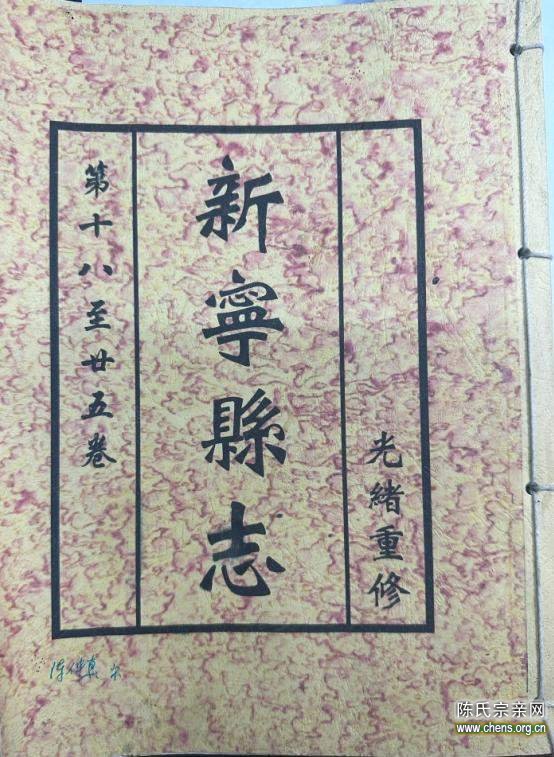 光緒重修
新寧縣志
第十八至廿五卷
陈氏宗亲网
www.chens.org.cn